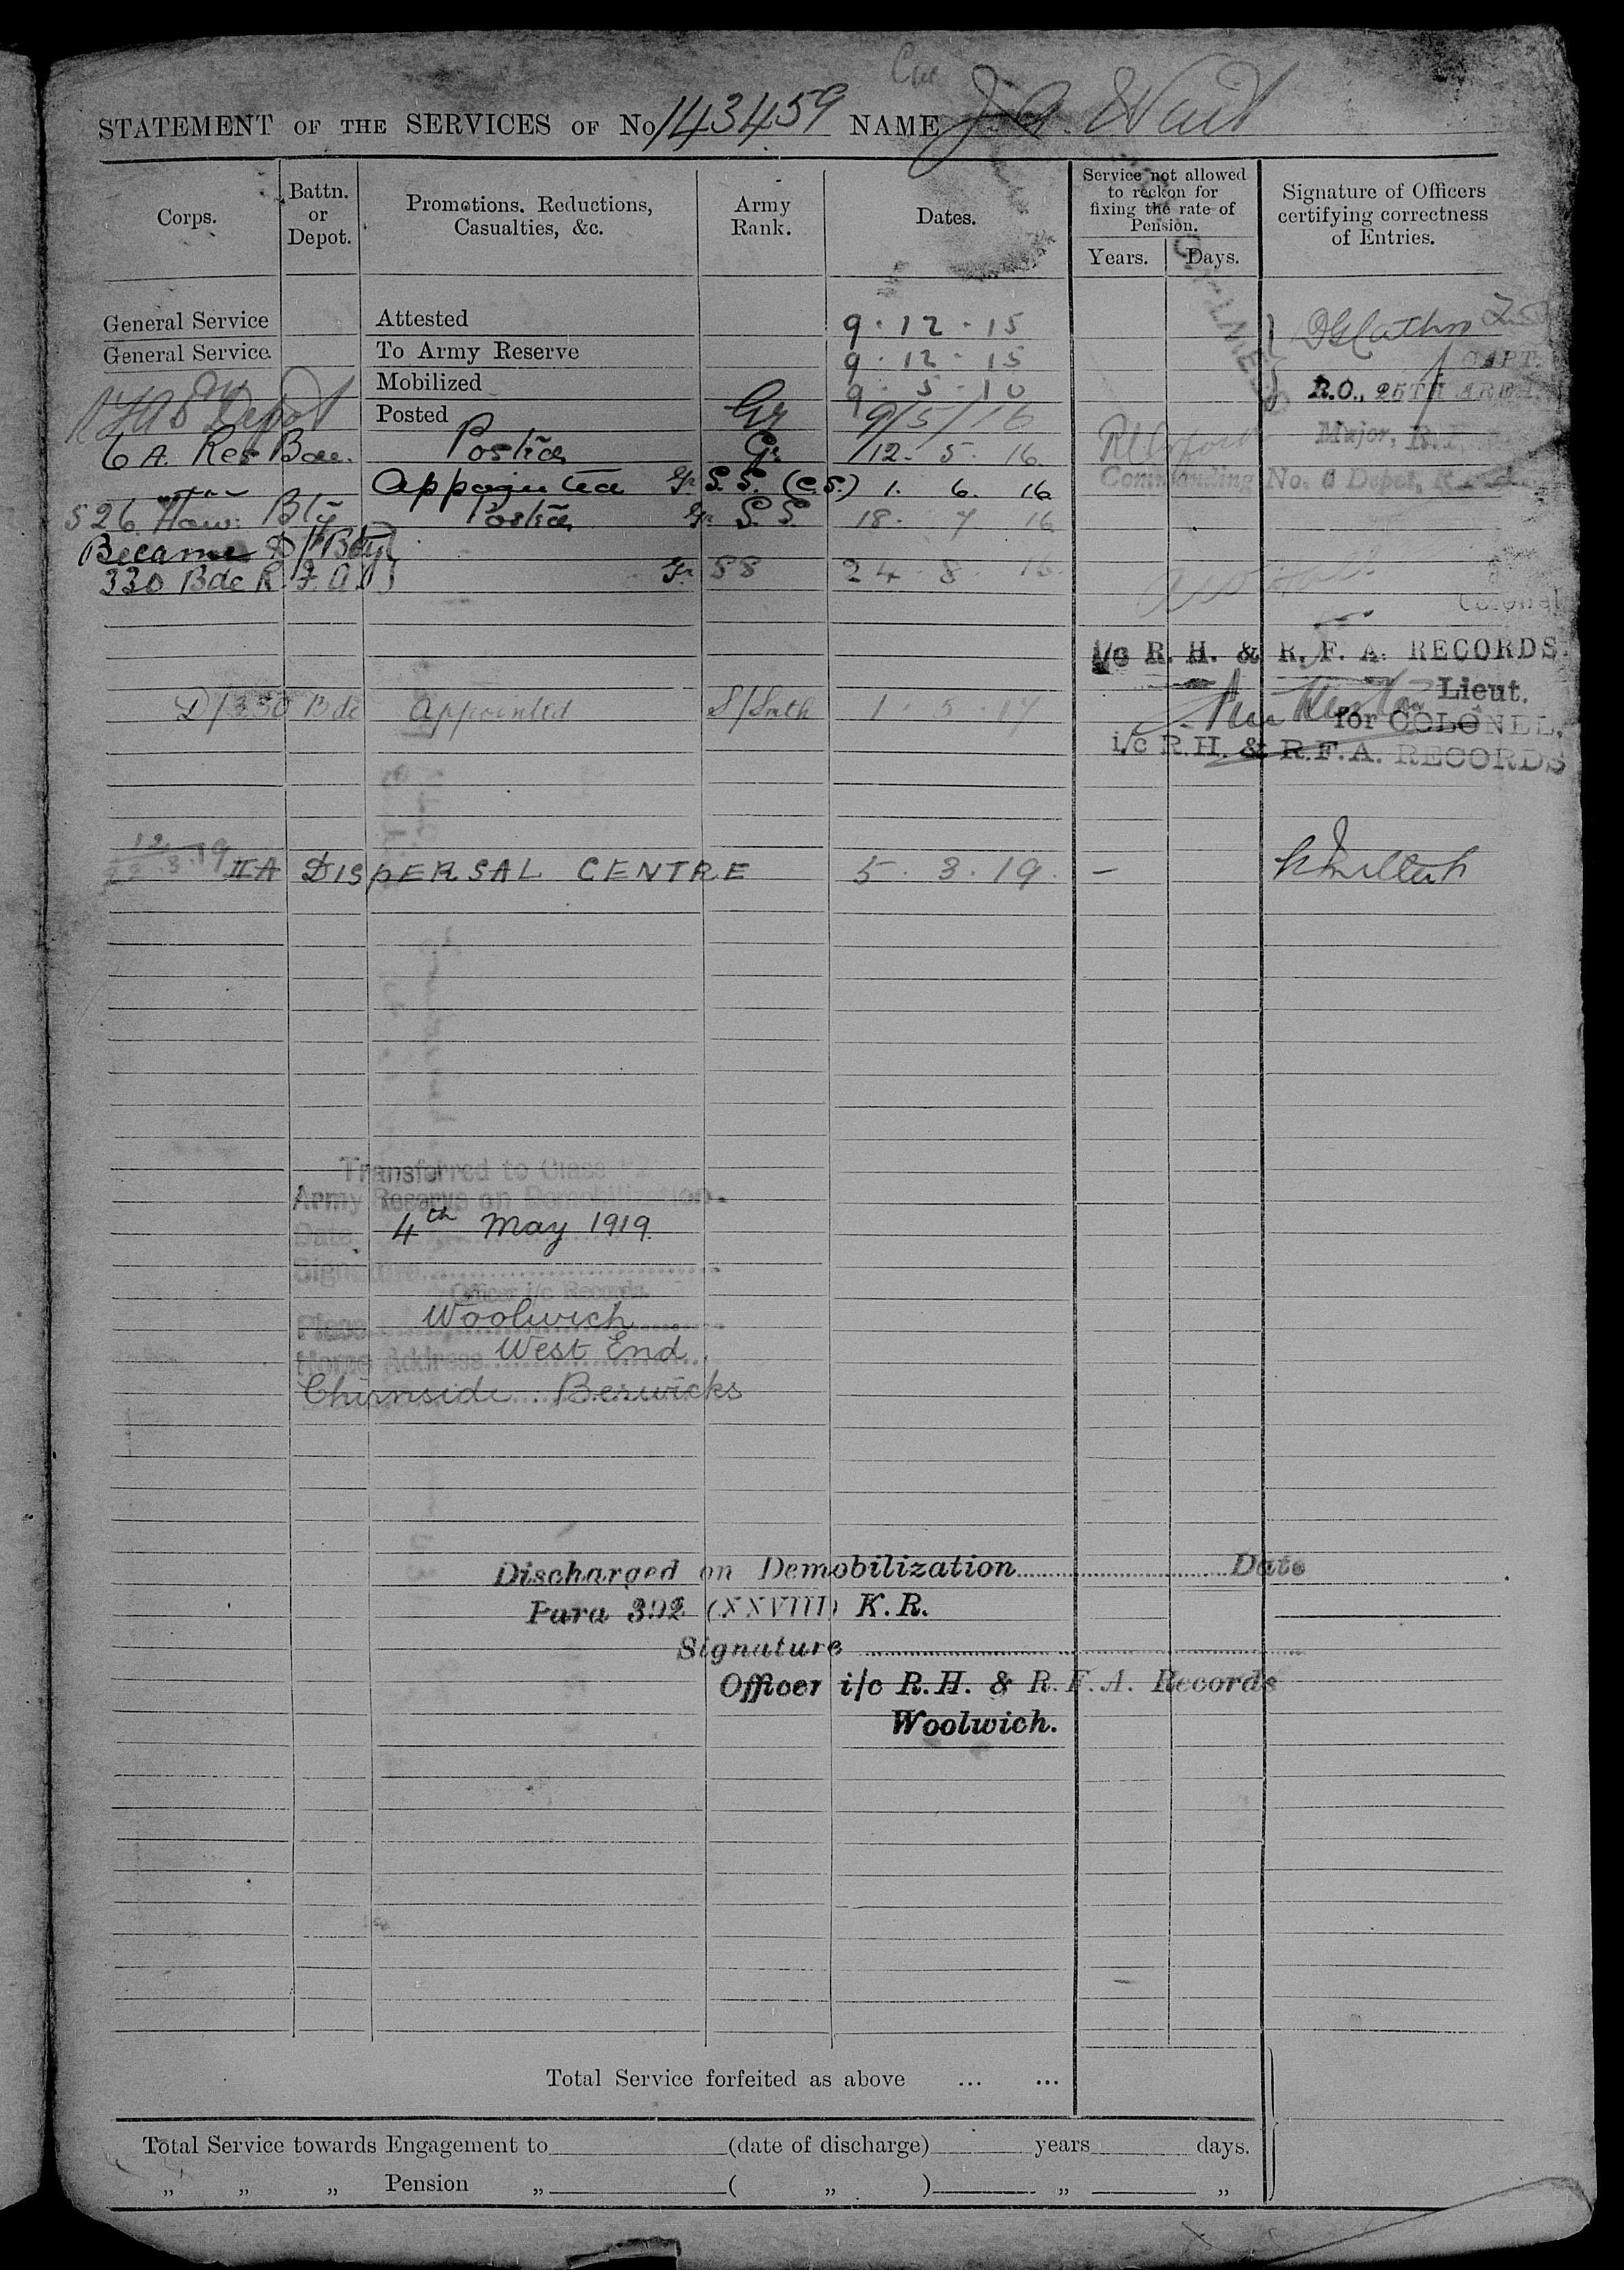 STATEMENT OF THE SERVICES OF No 143459 NAME J. A. Wait
Corps. Battn. or Depot. Promotions, Reductions, Casualties, &c. Army Rank. Dates. Service not allowed to reckon for fixing the rate of Pension. Signature of Officers certifying correctness of Entries.
Years. Days.
General Service Attested 9 . 12 . 15
General Service To Army Reserve 9 . 12 . 15 CAPT.
Mobilized 9 . 5 . 16 R.O., 25TH AREA.
Depot Posted Gr 9/5/16 Major, R.
6 A. Res Bde. Posted Gr 12. 5. 16.
Appointed Gr S.S. (C.S.) 1. 6. 16 Commanding No. 6 Depot, R
526 How: Bty Posted Gr S.S 18. 7 16
Became D/ Bty
330 Bde R. F. A. Gr SS 24 8 16.
Colonel
i/c R. H. & R. F. A. RECORDS.
Lieut.
D/330 Bde Appointed S/Smth 1 . 5 . 17
for COLONEL,
i/c R.H. & R.F.A. RECORDS
IIA DISPERSAL CENTRE 5 . 3 . 19. —
Transferred to Class
Army Reserve on Demobilization.
Date 4th May 1919.
Signature
Officer i/c Records.
Place Woolwich
Home Address West End,
Chirnside Berwicks
Discharged on Demobilization Date
Para 392 (XXVIII) K.R.
Signature
Officer i/c R.H. & R.F.A. Records
Woolwich.
Total Service forfeited as above ... ...
Total Service towards Engagement to (date of discharge) years days.
„ „ „ Pension „ ( „ ) „ „